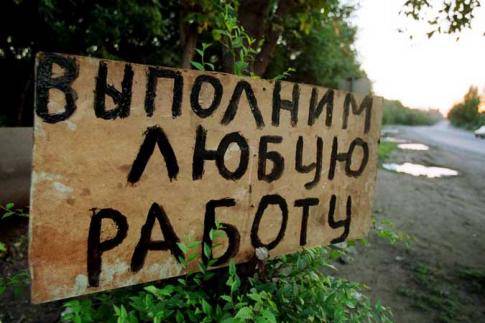 ВЫПОЛНИМ
ЛЮБУЮ
РАБОТУ